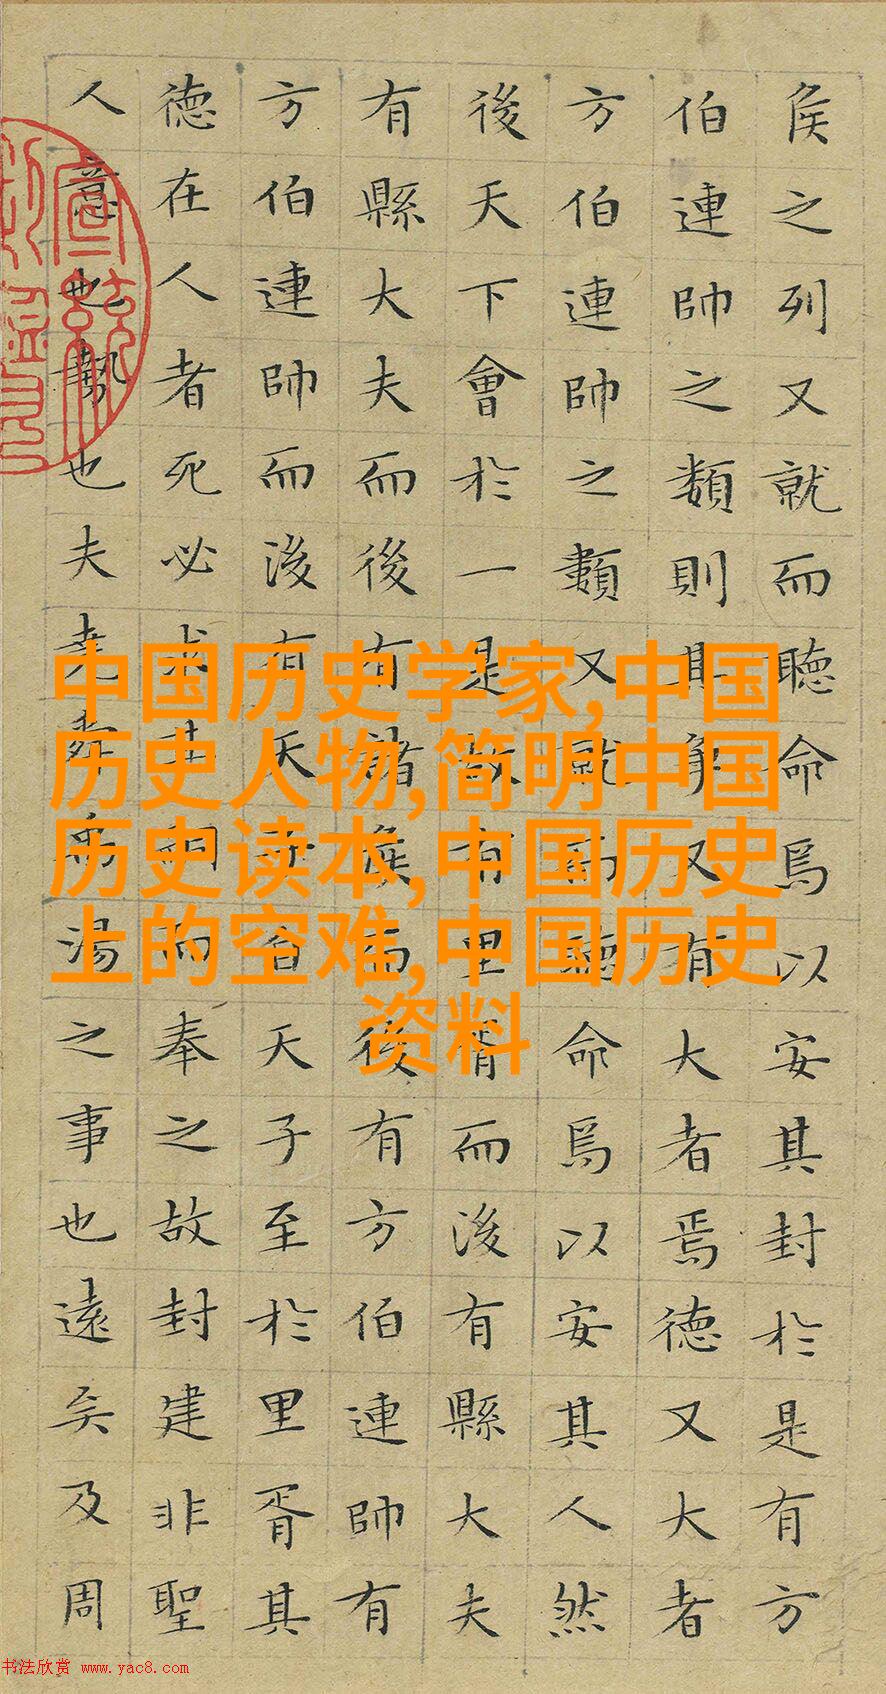 矦之列又就而聽命焉以安其封於是有方
伯連帥之類則其爭又有大者焉德又大者
方伯連帥之類又就而聽命焉以安其人然
後天下會於一是故有里胥而後有縣大夫
有縣大夫而後有諸矦而後有方伯連帥有
方伯連帥而後有天子自天子至於里胥其
德在人者死必求其嗣而奉之故封建非聖
人意也勢也夫堯舜禹湯之事也遠矣及周
中国历史学家,中国
历史人物,简明中国
历史读本,中国历史
上的空难,中国历史
资料
书法欣赏 www.yac8.com